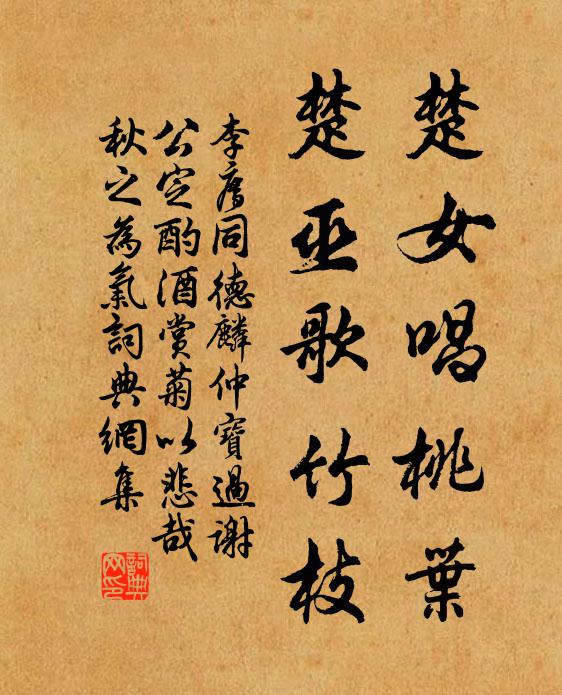 楚女唱桃葉
楚巫歌竹枝
李廌同德麟仲寶過謝
公定酌酒賞菊以悲哉
秋之為氣詞典網集
詞典
网印